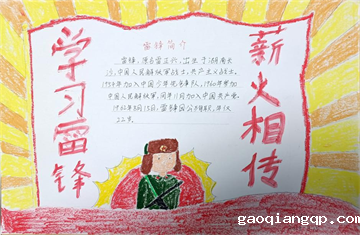 学习雷锋
薪火相传
雷锋简介
雷锋，原名雷正兴，出生于湖南长
沙，中国人民解放军战士，共产主义战士。
1954年加入中国少年先锋队，1960年参加
中国人民解放军，同年11月加入中国共产党。
1962年8月15日，雷锋因公殉职，年仅
22岁。
gaoqiangqp.com